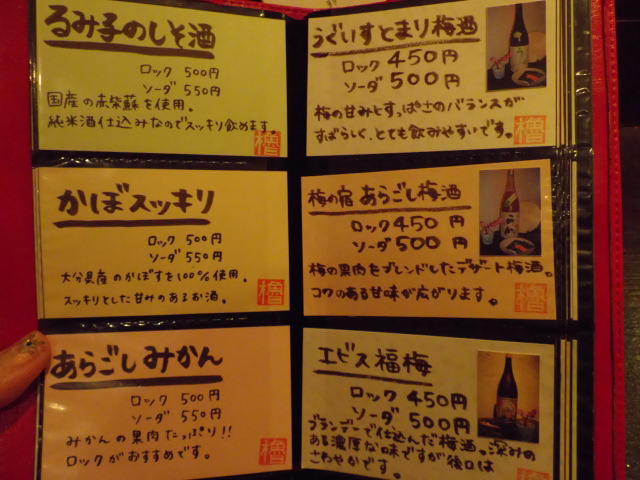 るみ子のしそ酒
ロック 500円
ソーダ 550円
国産の赤紫蘇を使用。
純米酒仕込みなのでスッキリ飲めます。
櫓
かぼスッキリ
ロック 500円
ソーダ 550円
大分県産のかぼすを100%使用。
スッキリとした甘みのあるお酒。
櫓
あらごしみかん
ロック 500円
ソーダ 550円
みかんの果肉たっぷり!!
ロックがおすすめです。
櫓
うぐいすとまり梅酒
ロック 450円
ソーダ 500円
梅の甘みとすっぱさのバランスが
すばらしく、とても飲みやすいです。
櫓
梅の宿 あらごし梅酒
ロック 450円
ソーダ 500円
梅の果肉をブレンドしたデザート梅酒。
コクのある甘味が広がります。
櫓
エビス福梅
ロック 450円
ソーダ 500円
ブランデーで仕込んだ梅酒。深みの
ある濃厚な味ですが後口は
さわやかです。